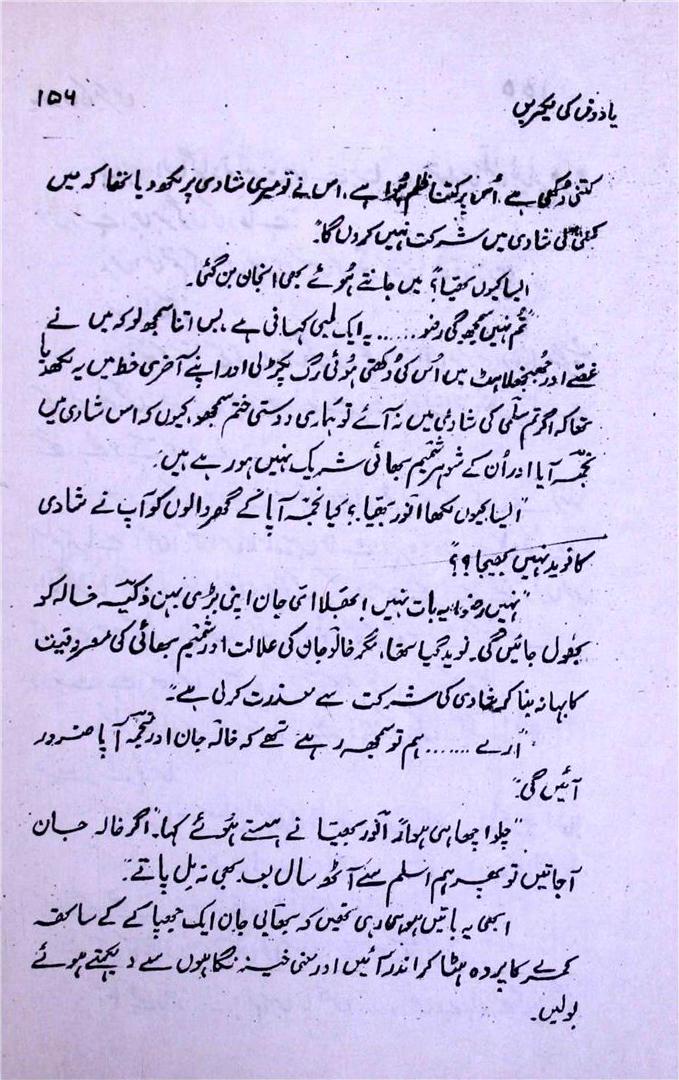 یادوں کی لکیریں ۱۵۶
کتنی دکھی ہے، اُس پر کتنا ظلم ہوا ہے، اس نے تو میری شادی پر لکھ دیا تھا کہ میں
کی شادی میں شرکت نہیں کروں گا"۔
ایسا کیوں بھیّا؟ میں جانتے ہوئے بھی انجان بن گئی۔
"تم نہیں سمجھو گی رضو...... یہ ایک لمبی کہانی ہے، بس اتنا سمجھ لو کہ میں نے
غصّے اور جھنجھلاہٹ میں اُس کی دُکھتی ہوئی رگ پکڑ لی اور اپنے آخری خط میں یہ لکھ دیا
تھا کہ اگر تم سلمٰی کی شادی میں نہ آئے تو ہماری دوستی ختم سمجھو، کیوں کہ اس شادی میں
نجمہ آپا اور اُن کے شوہر شمیم بھائی شریک نہیں ہو رہے ہیں۔
"ایسا کیوں لکھا انور بھیّا؟ کیا نجمہ آپا کے گھر والوں کو آپ نے شادی
کا نوید نہیں بھیجا؟؟"
"نہیں رضو! یہ بات نہیں! بھلا امّی جان اپنی بڑی بہن ذکیّہ خالہ کو
بھول جائیں گی۔ نوید گیا تھا، مگر خالو جان کی علالت اور شمیم بھائی کی مصروفیت
کا بہانہ بنا کر شادی کی شرکت سے معذرت کر لی ہے"۔
"ارے ...... ہم تو سمجھ رہے تھے کہ خالہ جان اور نجمہ آپا ضرور
آئیں گی"۔
"چلو اچھا ہی ہوا" انور بھیّا نے ہنستے ہوئے کہا۔ "اگر خالہ جان
آجاتیں تو پھر ہم اسلم سے آٹھ سال بعد بھی نہ مل پاتے"۔
ابھی یہ باتیں ہو ہی رہی تھیں کہ بھابی جان ایک جھپاکے کے ساتھ
کمرے کا پردہ ہٹا کر اندر آئیں اور معنی خیز نگاہوں سے دیکھتے ہوئے
بولیں۔